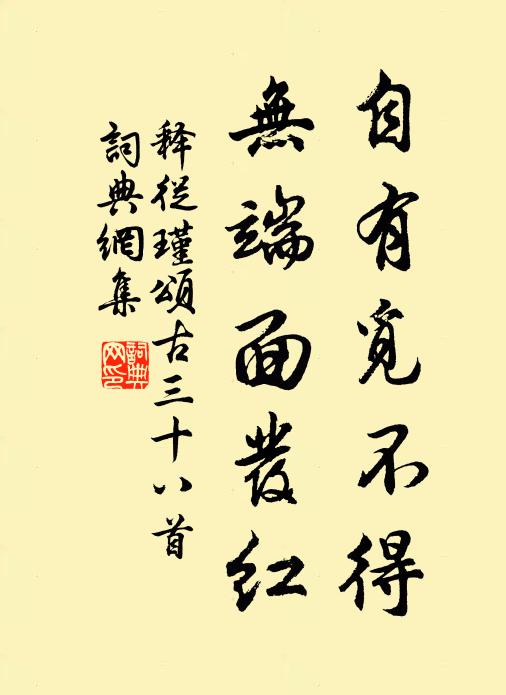 自有覓不得
無端面發紅
釋從瑾頌古三十八首
詞典網集
詞典網印